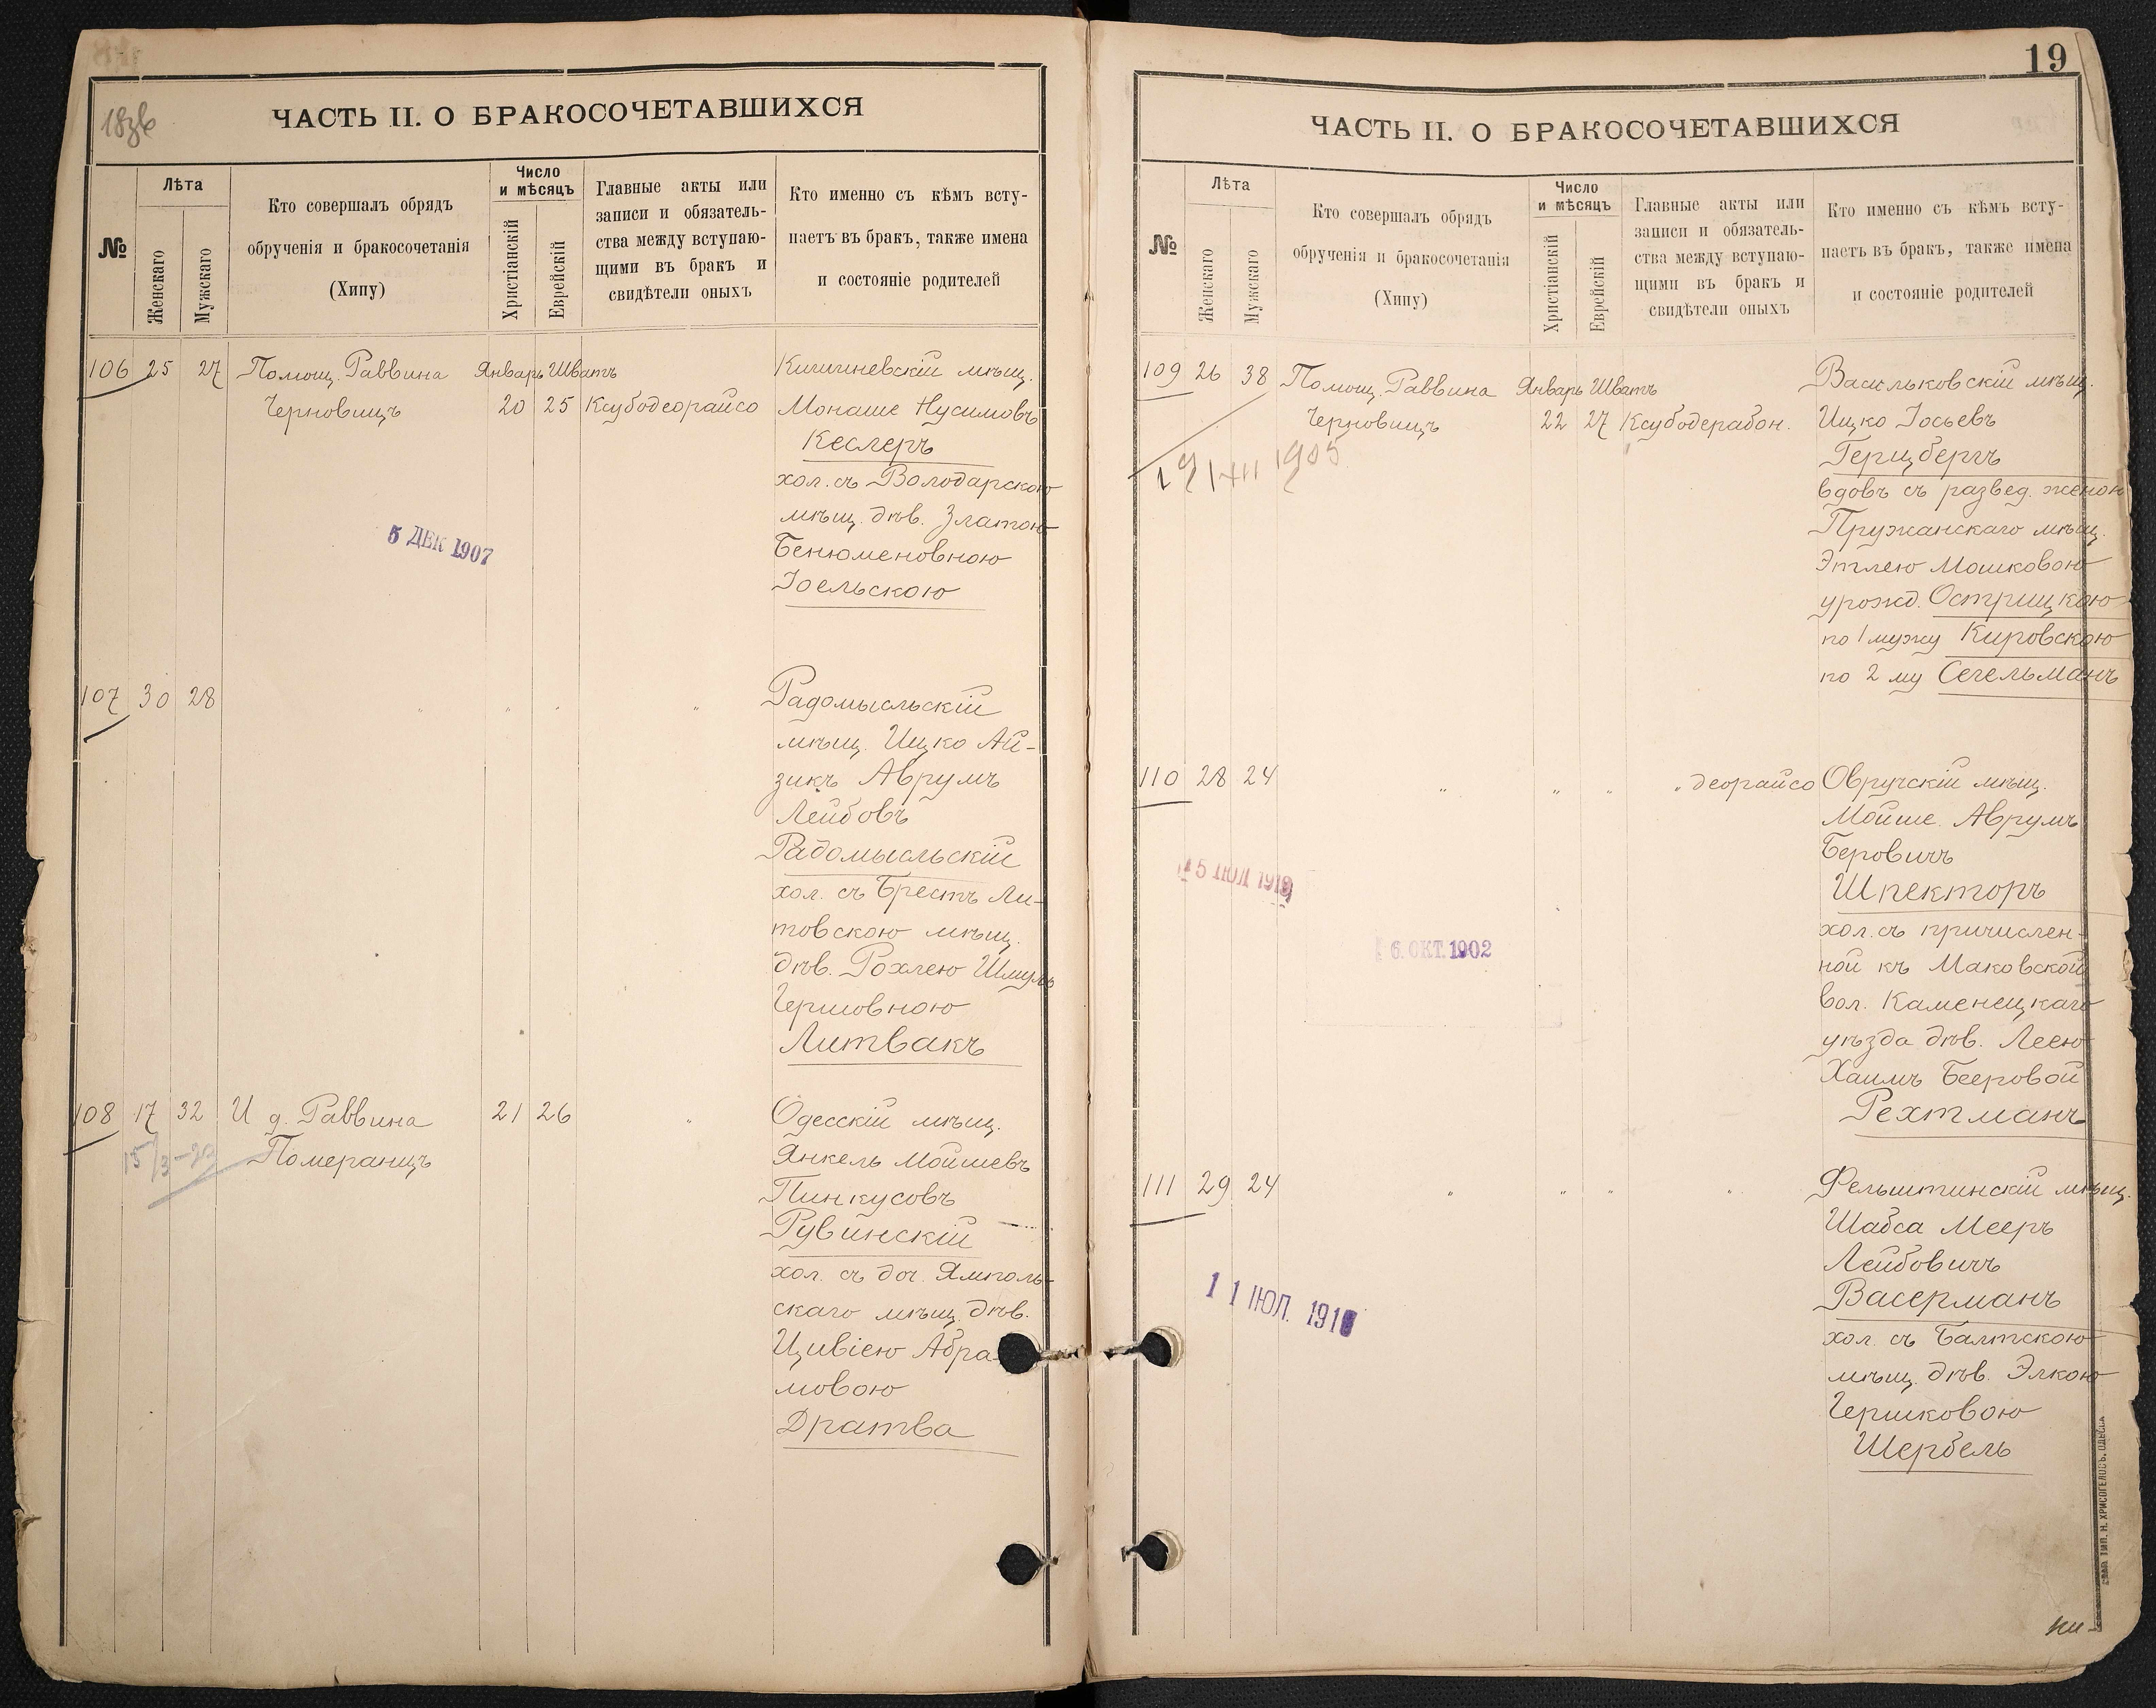 18зв
ЧАСТЬ II. О БРАКОСОЧЕТАВШИХСЯ
№
Лѣта
Женскаго
Мужскаго
Кто совершалъ обрядъ
обрученія и бракосочетанія
(Хипу)
Число
и мѣсяцъ
Христіанскій
Еврейскій
Главные акты или
записи и обязатель-
ства между вступаю-
щими въ бракъ и
свидѣтели оныхъ
Кто именно съ кѣмъ всту-
паетъ въ бракъ, также имена
и состояніе родителей
106 25 27 Помощ. Раввина Январь Шватъ Кишиневскій мѣщ.
Черновицъ 20 25 Ксубодеорайсо Монаше Нусимовъ
Кеслеръ
хол. съ Володарскою
мѣщ. дѣв. Златою
5 ДЕК 1907
Бенюменовною
Іоельскою
107 30 28 " " " " Радомысльскій
мѣщ. Ицко Ай-
зикъ Аврумъ
Лейбовъ
Радомысльскій
хол. съ Брестъ Ли-
товскою мѣщ.
дѣв. Рохлею Шмуль
Гершовною
Литвакъ
108 17 32 И д. Раввина 21 26 " Одесскій мѣщ.
Померанцъ Янкель Мойшевъ
Пинкусовъ
Рувинскій
хол. съ доч. Ямполь-
скаго мѣщ. дѣв.
Цивіею Абра-
мовою
Дратва
19
ЧАСТЬ II. О БРАКОСОЧЕТАВШИХСЯ
№
Лѣта
Женскаго
Мужскаго
Кто совершалъ обрядъ
обрученія и бракосочетанія
(Хипу)
Число
и мѣсяцъ
Христіанскій
Еврейскій
Главные акты или
записи и обязатель-
ства между вступаю-
щими въ бракъ и
свидѣтели оныхъ
Кто именно съ кѣмъ всту-
паетъ въ бракъ, также имена
и состояніе родителей
109 26 38 Помощ. Раввина Январь Шватъ Васильковскій мѣщ.
Черновицъ 22 27 Ксубодерабон. Ицко Іосьевъ
Герцбергъ
1905
вдовъ съ развед. женою
Пружанскаго мѣщ.
Этлею Мошковою
урожд. Острицкою
по 1 мужу Кировскою
по 2 му Сегельманъ
110 28 24 " " " " деорайсо Овручскій мѣщ.
Мойше Аврумъ
Беровичъ
Шпекторъ
15 ІЮЛ
6. ОКТ. 1902
хол. съ причислен-
ной къ Маковской
вол. Каменецкаго
уѣзда дѣв. Леею
Хаимъ Бееровой
Рехтманъ
111 29 24 " " " " Фельштинскій мѣщ.
Шабса Мееръ
Лейбовичъ
Васерманъ
11 ІЮЛ.
хол. съ Балтскою
мѣщ. дѣв. Элкою
Гершковою
Шербель
ТИП. Н. ХРИСОГЕЛОСЪ, ОДЕССА